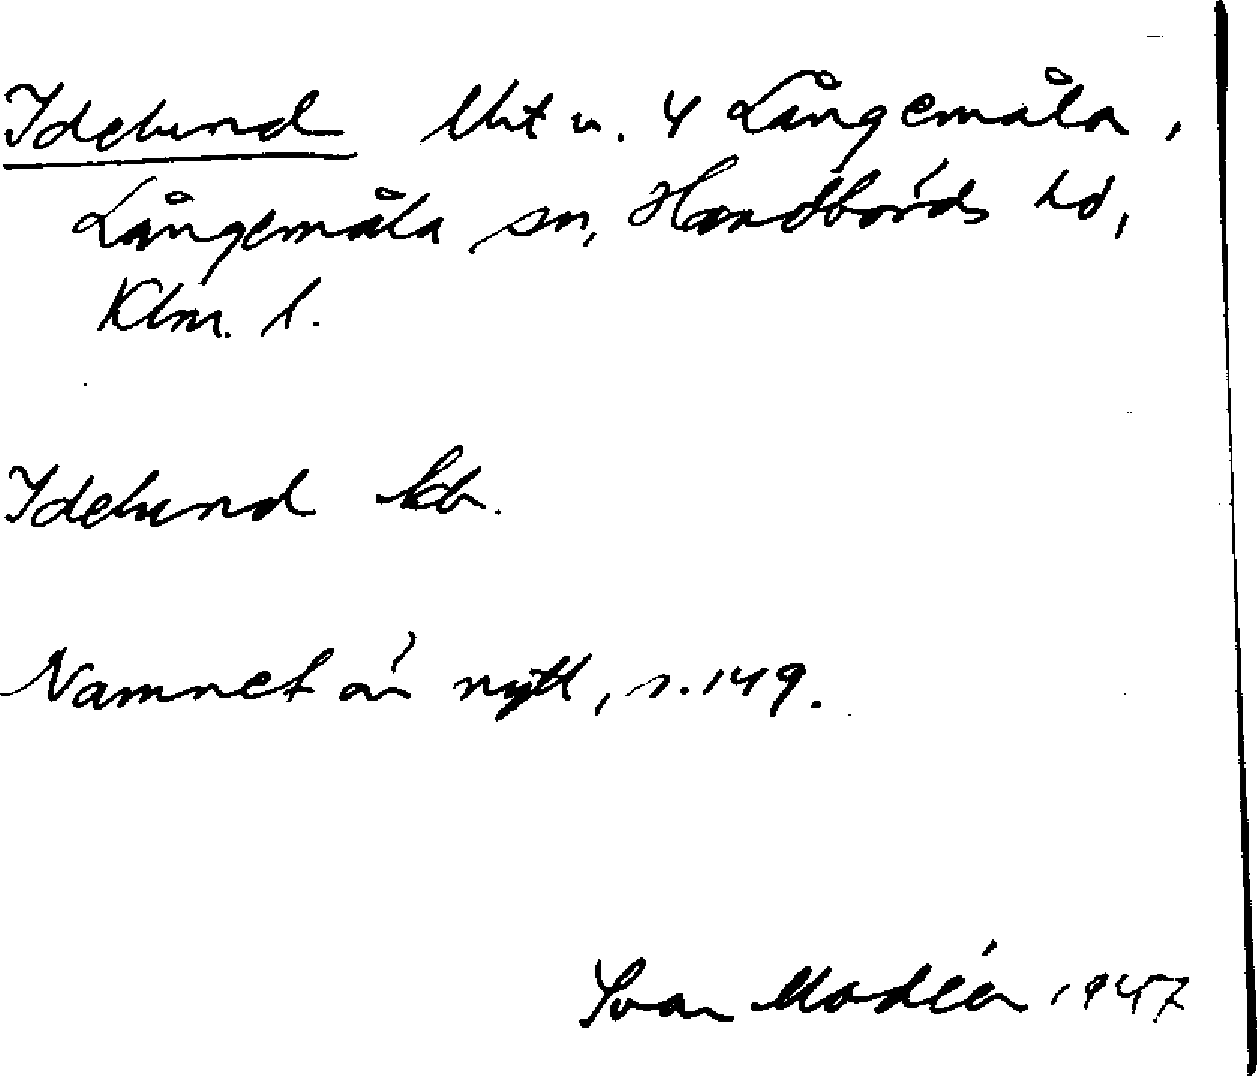 Idelund lht u. 4 Långemåla,
Långemåla sn, Handbörds hd,
Klm. l.
Idelund kb.
Namnet är nytt, s. 149.
Ivar Modéer 1947